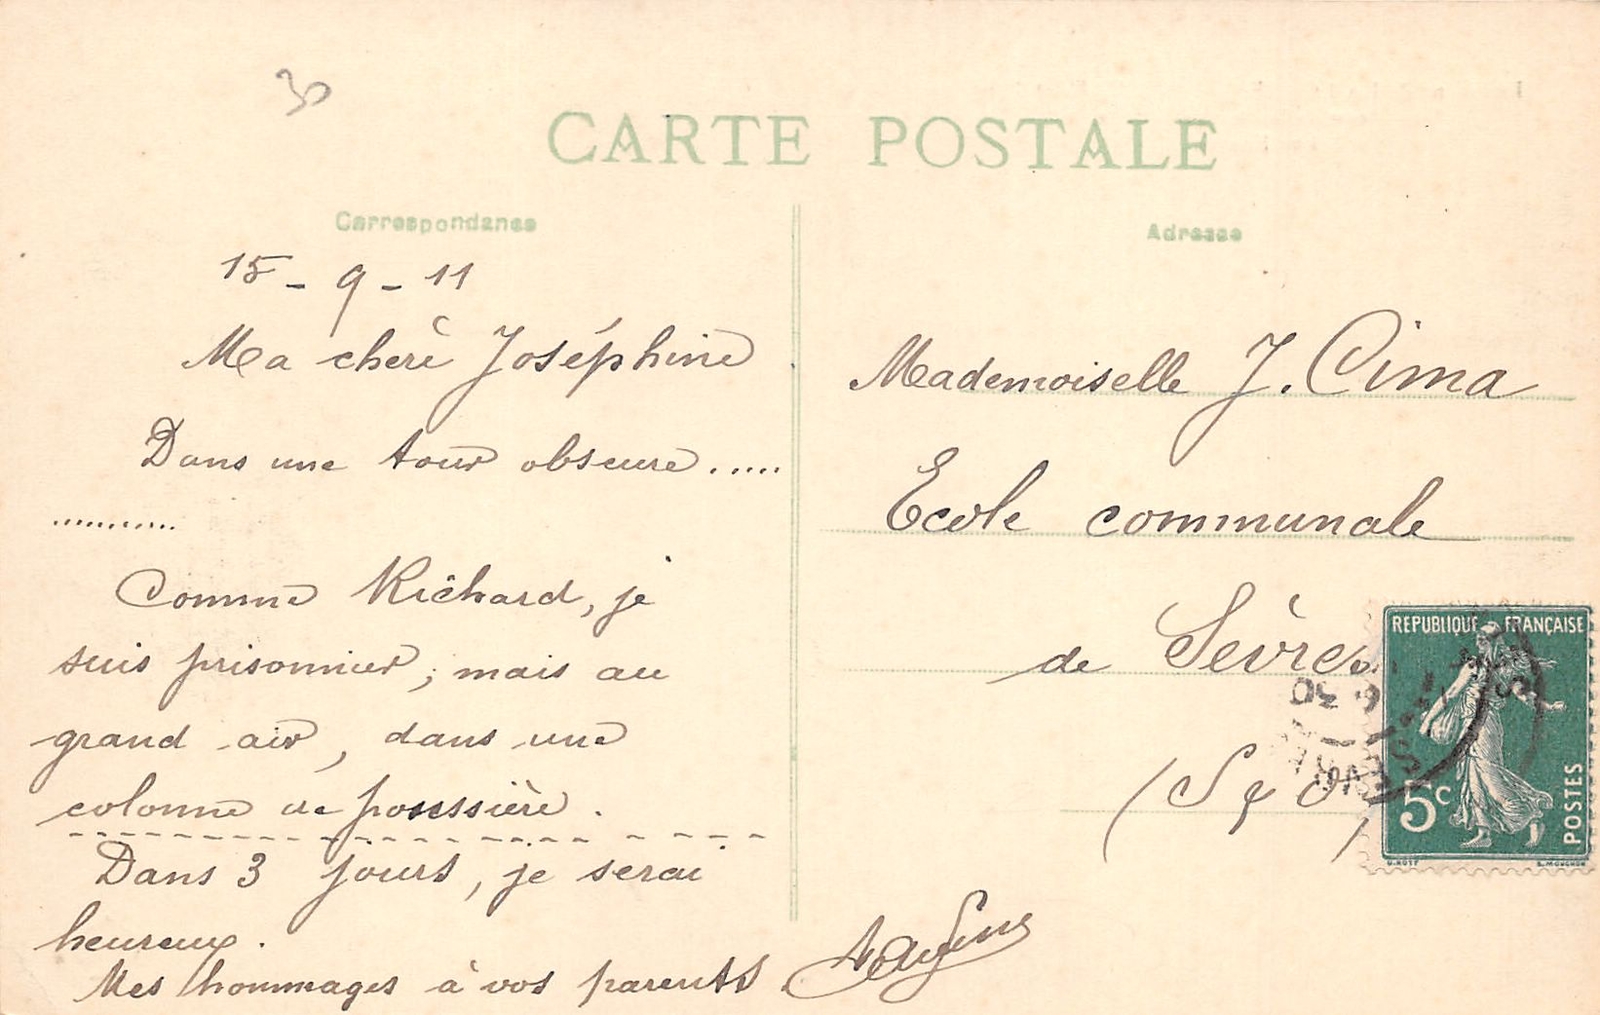 30
CARTE POSTALE
Correspondance
15 - 9 - 11
Ma chère Joséphine
Dans une tour obscure .....
...........
Comme Richard, je
suis prisonnier, mais au
grand air, dans une
colonne de poussière.
Dans 3 jours, je serai
heureux.
Mes hommages à vos parents.
Adresse
Mademoiselle J. Cima
Ecole communale
de Sèvres
(S & O)
REPUBLIQUE FRANÇAISE
5c
POSTES